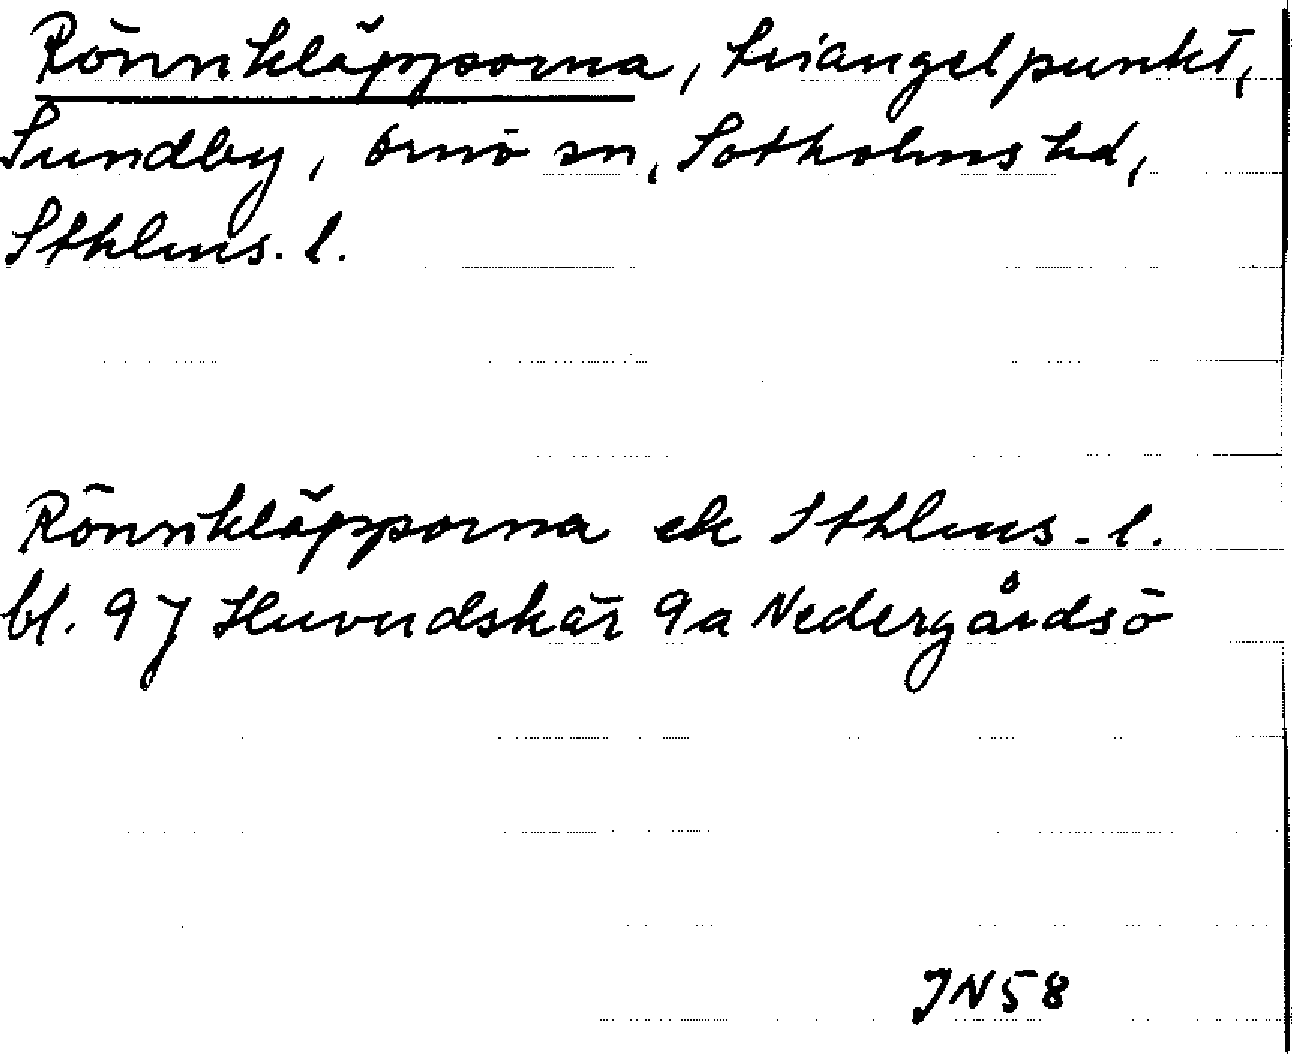 Rönnkläpporna, triangelpunkt,
Sundby, Ornö sn, Sotholms hd,
Sthlms. l.
Rönnkläpporna ek Sthlms. l.
bl. 97 Huvudskär 9a Nedergårdsö
JN58